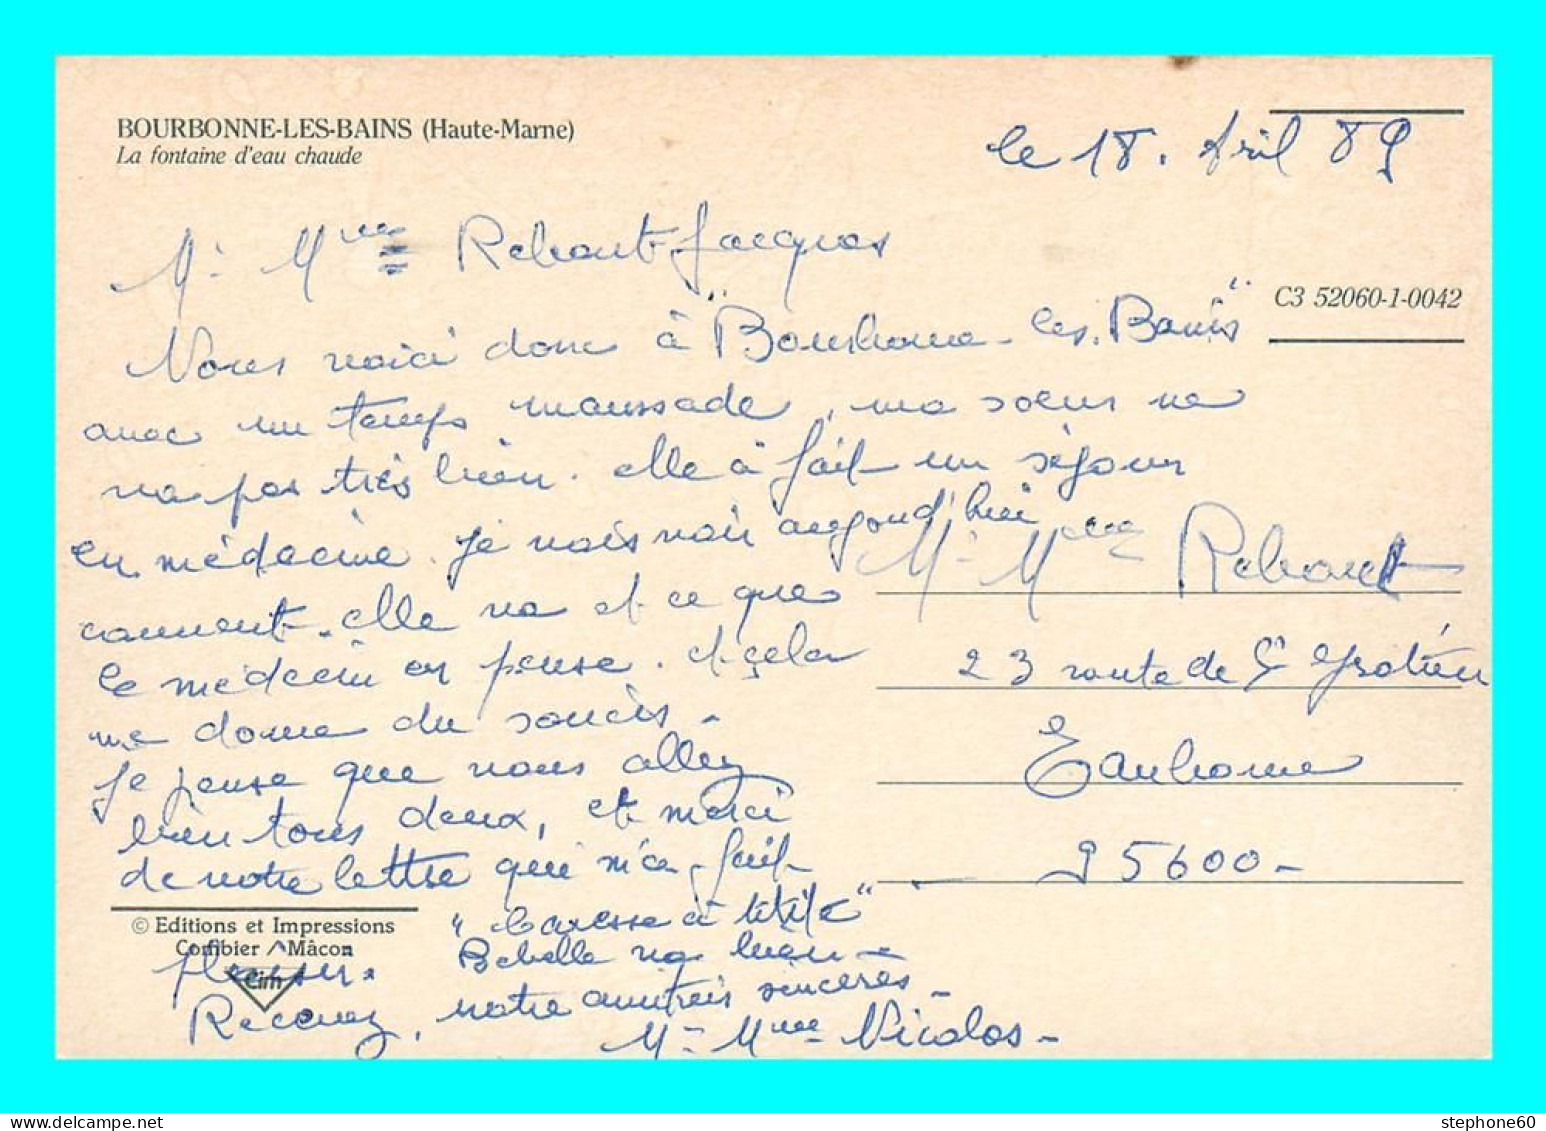 BOURBONNE-LES-BAINS (Haute-Marne)
La fontaine d'eau chaude
le 18. Avril 89
Mr Mme Jacques
C3 52060-1-0042
Nous voici donc à "Bourbonne-les-Bains"
avec un temps maussade, ma soeur ne
va pas très bien. elle à fait un séjour
en médecine. je vais voir aujourd'hui
comment elle va et ce que
le médecin en pense. et cela
me donne du soucis-
je pense que vous allez
bien tous deux, et merci
de votre lettre qui m'a fait
plaisir.
"Caresse à titite"
Bebelle va bien-
Recevez, notre amitiés sincères-
Mr- Mme Nicolas-
Mr- Mme
23 route de St Gratien
Eaubonne
95600-
© Editions et Impressions
Combier Mâcon
Cim
stephone60